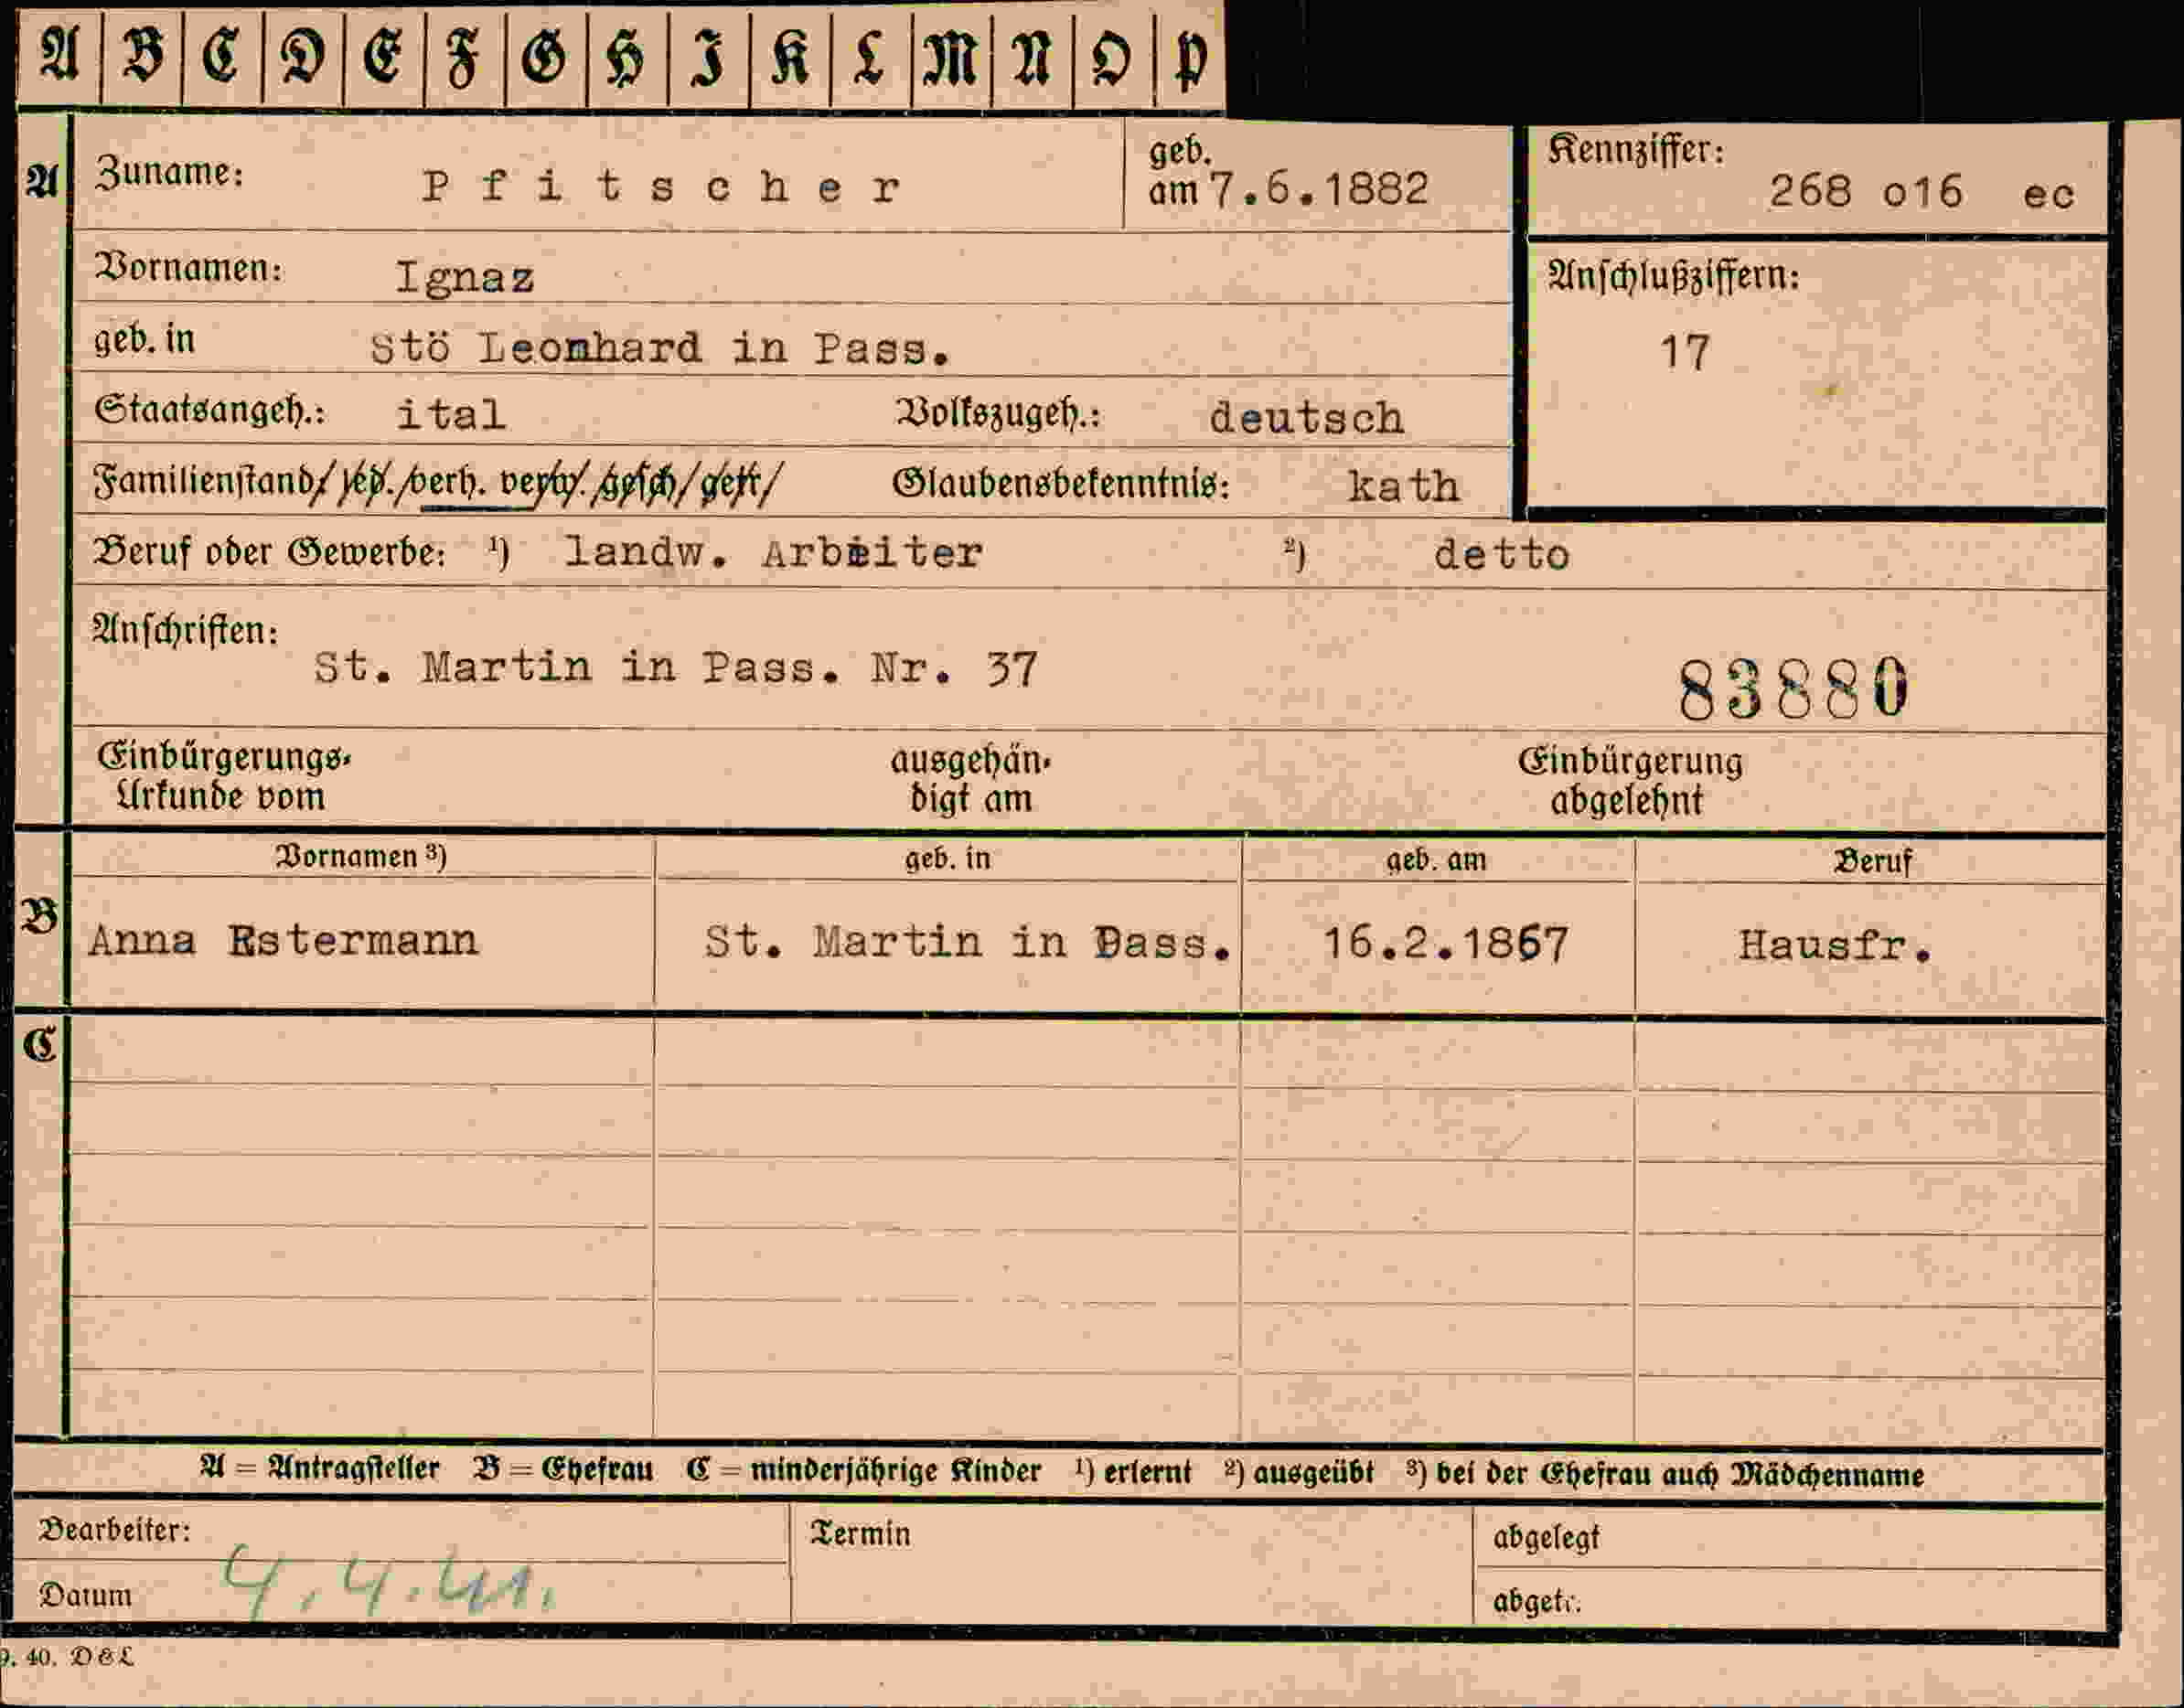 A B C D E F G H I K L M N O P
A Zuname: Pfitscher geb. am 7.6.1882 Kennziffer: 268 o16 ec
Vornamen: Ignaz Anschlußziffern:
geb. in Stö Leonhard in Pass. 17
Staatsangeh.: ital Volkszugeh.: deutsch
Familienstand/ led./verh. verw./gesch/getr/ Glaubensbekenntnis: kath
Beruf oder Gewerbe: ¹) landw. Arbeiter ²) detto
Anschriften:
St. Martin in Pass. Nr. 37 83880
Einbürgerungs- ausgehän- Einbürgerung
Urkunde vom digt am abgelehnt
Vornamen ³) geb. in geb. am Beruf
B Anna Estermann St. Martin in Dass. 16.2.1867 Hausfr.
C
A = Antragsteller B = Ehefrau C = minderjährige Kinder ¹) erlernt ²) ausgeübt ³) bei der Ehefrau auch Mädchenname
Bearbeiter: Termin abgelegt
Datum 4.4.41. abgetr.
9. 40. D&L